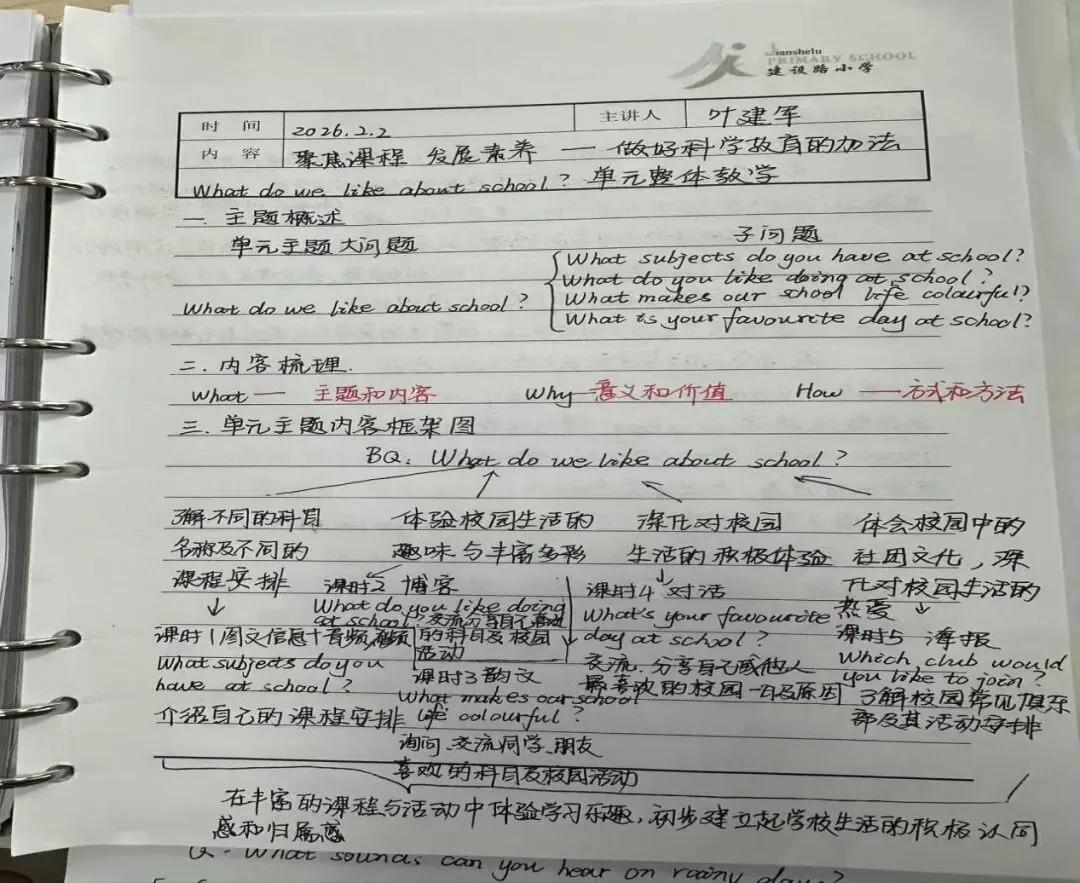 Jianshelu
PRIMARY SCHOOL
建设路小学
时间 2026.2.2 主讲人 叶建军
内容 聚焦课程 发展素养 — 做好科学教育的加法
What do we like about school? 单元整体教学
一. 主题概述
单元主题大问题 子问题
What subjects do you have at school?
What do you like doing at school?
What do we like about school?
What makes our school life colourful?
What is your favourite day at school?
二. 内容梳理.
What — 主题和内容 Why — 意义和价值 How — 方式和方法
三. 单元主题内容框架图
BQ: What do we like about school?
了解不同的科目
名称及不同的
课程安排
课时1图文信息+音频,视频
What subjects do you
have at school?
介绍自己的课程安排
体验校园生活的
趣味与丰富多彩
课时2 博客
What do you like doing
at school? 交流分享自己喜欢
的科目及校园
活动
课时3 韵文
What makes our school
life colourful?
询问、交流同学、朋友
喜欢的科目及校园活动
深化对校园
生活的积极体验
课时4 对话
What's your favourite
day at school?
交流、分享自己或他人
最喜欢的校园一日及原因
体会校园中的
社团文化,深
化对校园生活的
热爱
课时5 海报
Which club would
you like to join?
了解校园常见俱乐
部及其活动安排
在丰富的课程与活动中体验学习乐趣,初步建立起学校生活的积极认同
感和归属感
Q: What sounds can you hear on rainy days?